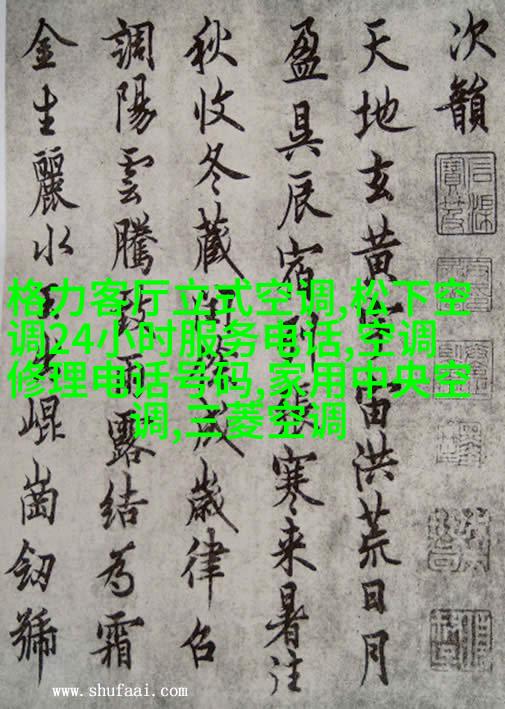 次韻
天地玄黃宇宙洪荒日月
盈昃辰宿列張寒来暑往
秋收冬藏閏餘成歲律召
調陽雲騰致雨露結為霜
金生麗水玉出崐崗劒號
格力客厅立式空调,松下空
调24小时服务电话,空调
修理电话号码,家用中央空
调,三菱空调
www.shufaai.com